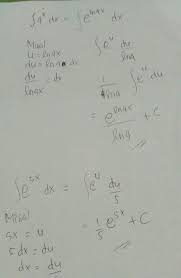 ∫aˣ dx = ∫e^{lnax} dx
Misal
u = lnax
du = lna dx
du/lnax = dx
∫e^u du/lna
1/lna ∫e^u du
= e^{lnax}/lna + C
∫e^{5x} dx = ∫e^u du/5
Misal
5x = u
5dx = du
dx = du
= 1/5 e^{5x} + C